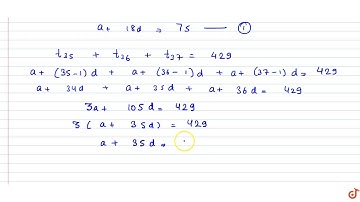 a + 18d = 75 — ①
t35 + t36 + t37 = 429
a + (35-1)d + a + (36-1)d + a + (37-1)d = 429
a + 34d + a + 35d + a + 36d = 429
3a + 105d = 429
3(a + 35d) = 429
a + 35d =